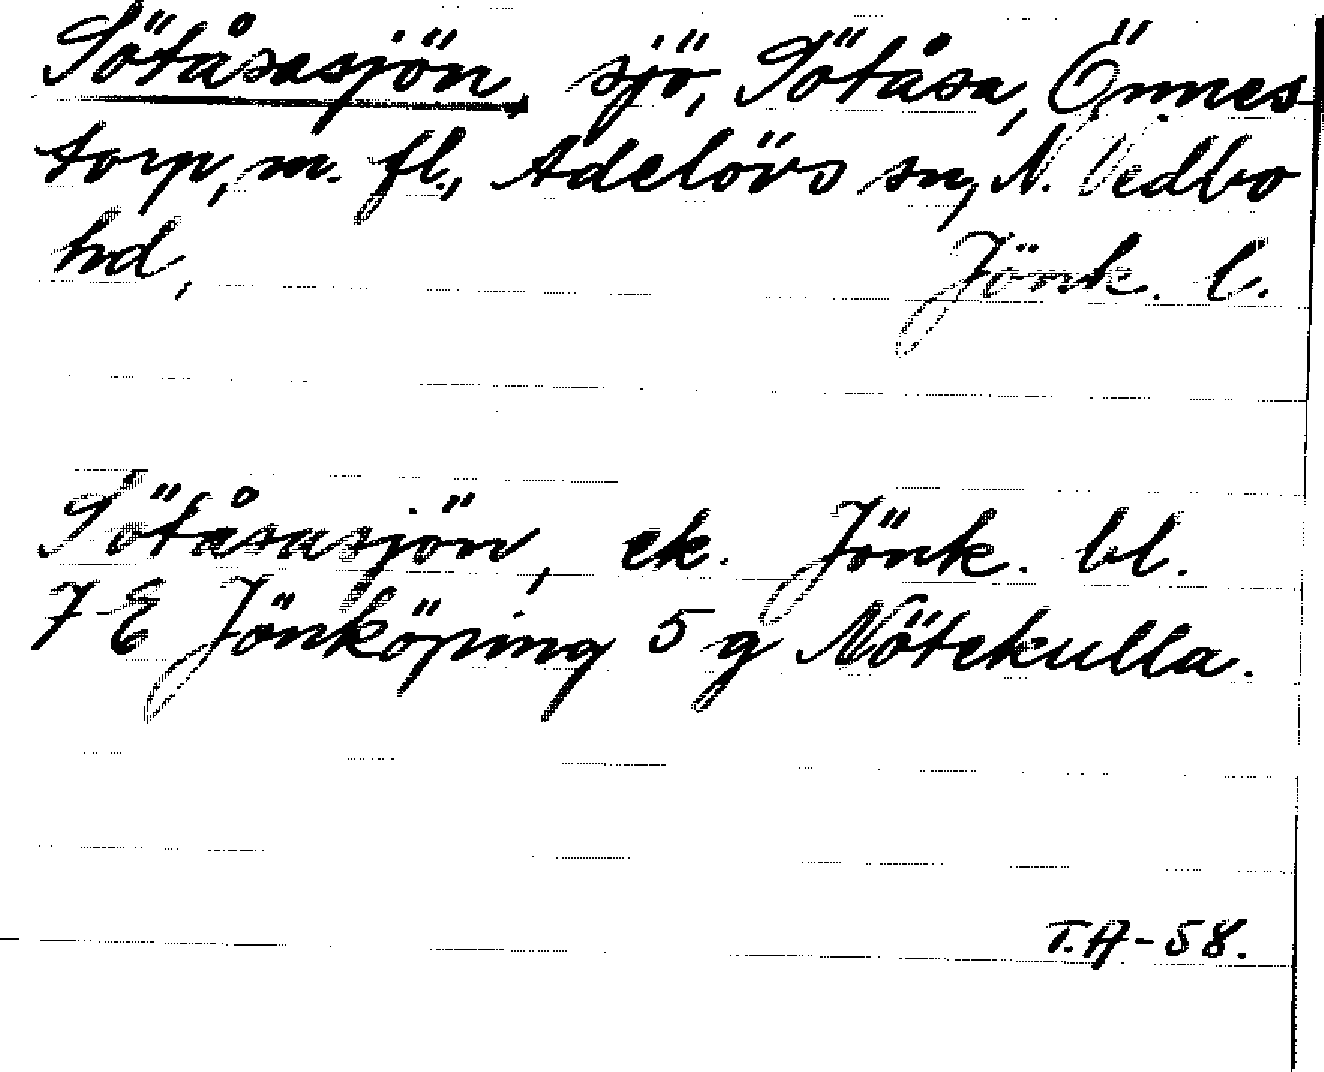 Sötåsasjön, sjö, Sötåsa, Önnes
torp, m. fl., Adelövs sn, N. Vedbo
hd, Jönk. l.
Sötåsasjön, ek. Jönk. bl.
7 E Jönköping 5 g Nötekulla.
T.A-58.